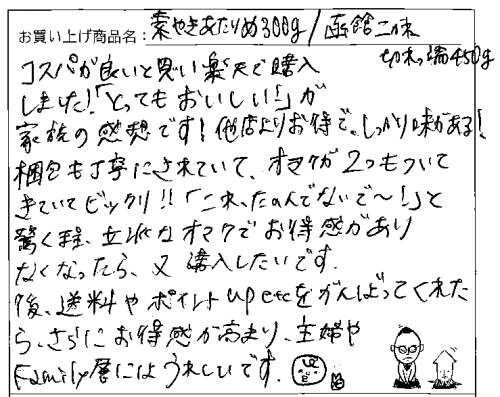 お買い上げ商品名：素やきあたりめ300g/函館こがね
切れっ端450g
コスパが良いと思い楽天で購入
しました！「とってもおいしい！」が
家族の感想です！他店よりお得で。しっかり味がある！
梱包も丁寧にされていて、オマケが2つもついて
きていてビックリ!!「これ、たのんでないで〜！」と
驚く程、立派なオマケでお得感があり
なくなったら、又購入したいです。
後、送料やポイントup etcをがんばってくれた
ら、さらにお得感が高まり、主婦や
Family層にはうれしいです。